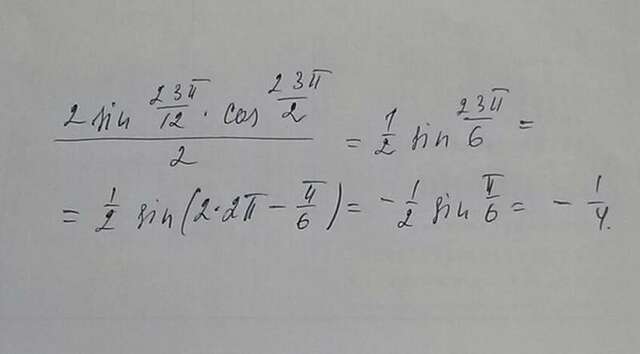 2 sin 23π/12 · cos 23π/2 / 2 = 1/2 sin 23π/6 =
= 1/2 sin(2·2π - π/6) = - 1/2 sin π/6 = - 1/4.